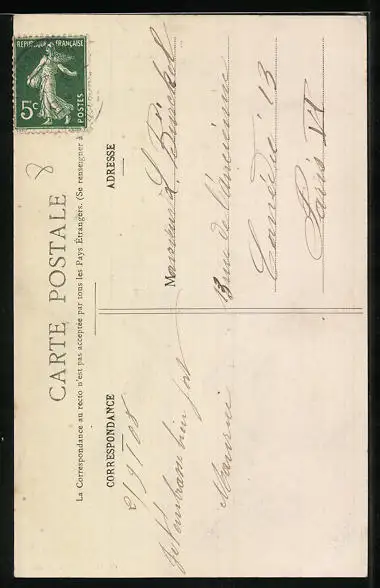 REPUBLIQUE FRANÇAISE
5c
POSTES
8
CARTE POSTALE
La Correspondance au recto n'est pas acceptée par tous les Pays Étrangers. (Se renseigner à
CORRESPONDANCE
ADRESSE
2/9/08
Je t'embrasse bien fort
Maurice
Monsieur L.
13 rue de l'ancienne
Comédie 13
Paris VI